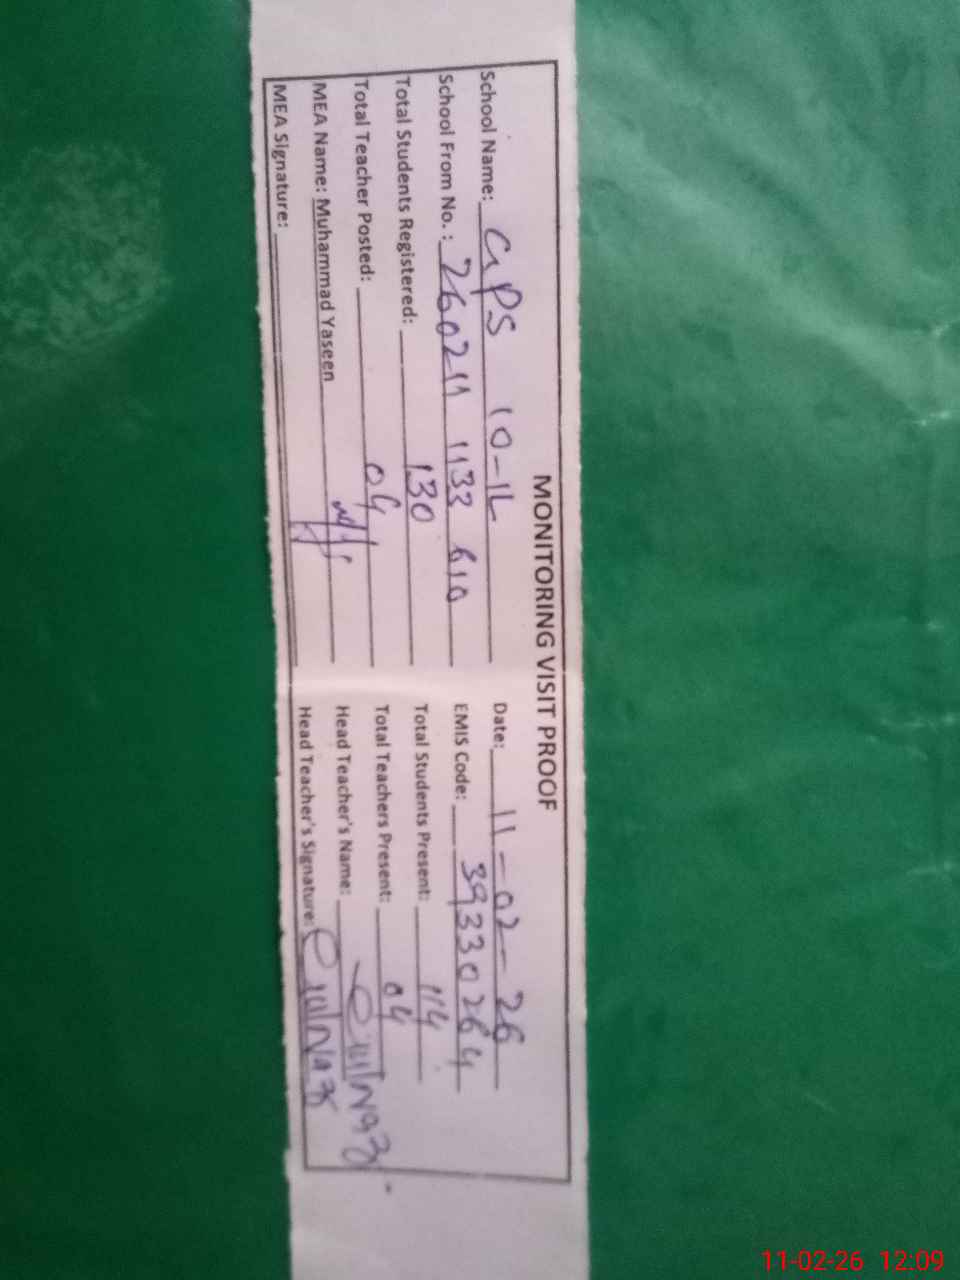 MONITORING VISIT PROOF
School Name: GPS 10-1L Date: 11-02-26
School From No.: 260211 1133 610 EMIS Code: 39330264
Total Students Registered: 130 Total Students Present: 114
Total Teacher Posted: 04 Total Teachers Present: 04
MEA Name: Muhammad Yaseen Head Teacher's Name:
MEA Signature: Head Teacher's Signature:
11-02-26 12:09